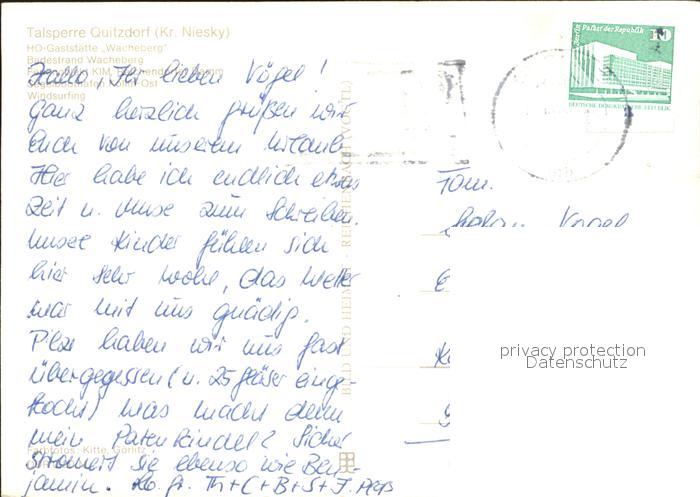 Talsperre Quitzdorf (Kr. Niesky)
HO-Gaststätte „Wacheberg"
Badestrand Wacheberg
Windsurfing
Hallo, Ihr lieben Vögel!
ganz herzlich grüßen wir
Euch von unserem Urlaub.
Hier habe ich endlich etwas
Zeit u. Muse zum Schreiben.
Unsere Kinder fühlen sich
hier sehr wohl, das Wetter
war mit uns gnädig.
Pilze haben wir uns fast
übergegessen (u. 25 Gläser einge-
kocht) was macht denn
mein Patenkindel? Sicher
stromert sie ebenso wie Ben-
jamin. Lb. Gr. Th+C+B+S+J.
Farbfotos: Kitte, Görlitz
BILD UND HEIMAT REICHENBACH (VOGTL)
Berlin Palast der Republik
10
DEUTSCHE DEMOKRATISCHE REPUBLIK
Fam.
Vogel
privacy protection
Datenschutz